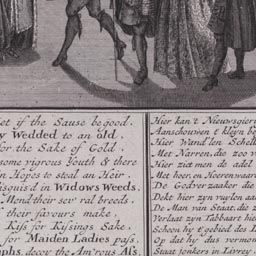 et if the Sause be good.
y Wedded to an old,
for the Sake of Gold.
some vigorous Youth & there
n Hopes to steal an Heir.
isguis'd in Widows Weeds.
Mend their sev'ral breeds.
their favours make.
Kiss for Kissings Sake.
for Maiden Ladies pass.
decoy the Am'rous Ass.
Hier kan't Nieuwsgier
Aanschouwen t kleyn be
Hier Wandlen Schell
Met Narren, die zoo
Hier ziet men de adel
Met heer, en Heerenwaar
De Godverzaaker die
Deke hier zyn vuylen aa
De man van Staat, die
Verlaat zyn Tabbaart hie
Schoon hy t gebied des L
Op dat hy dus vermom
Staat Jonkers in Livrey